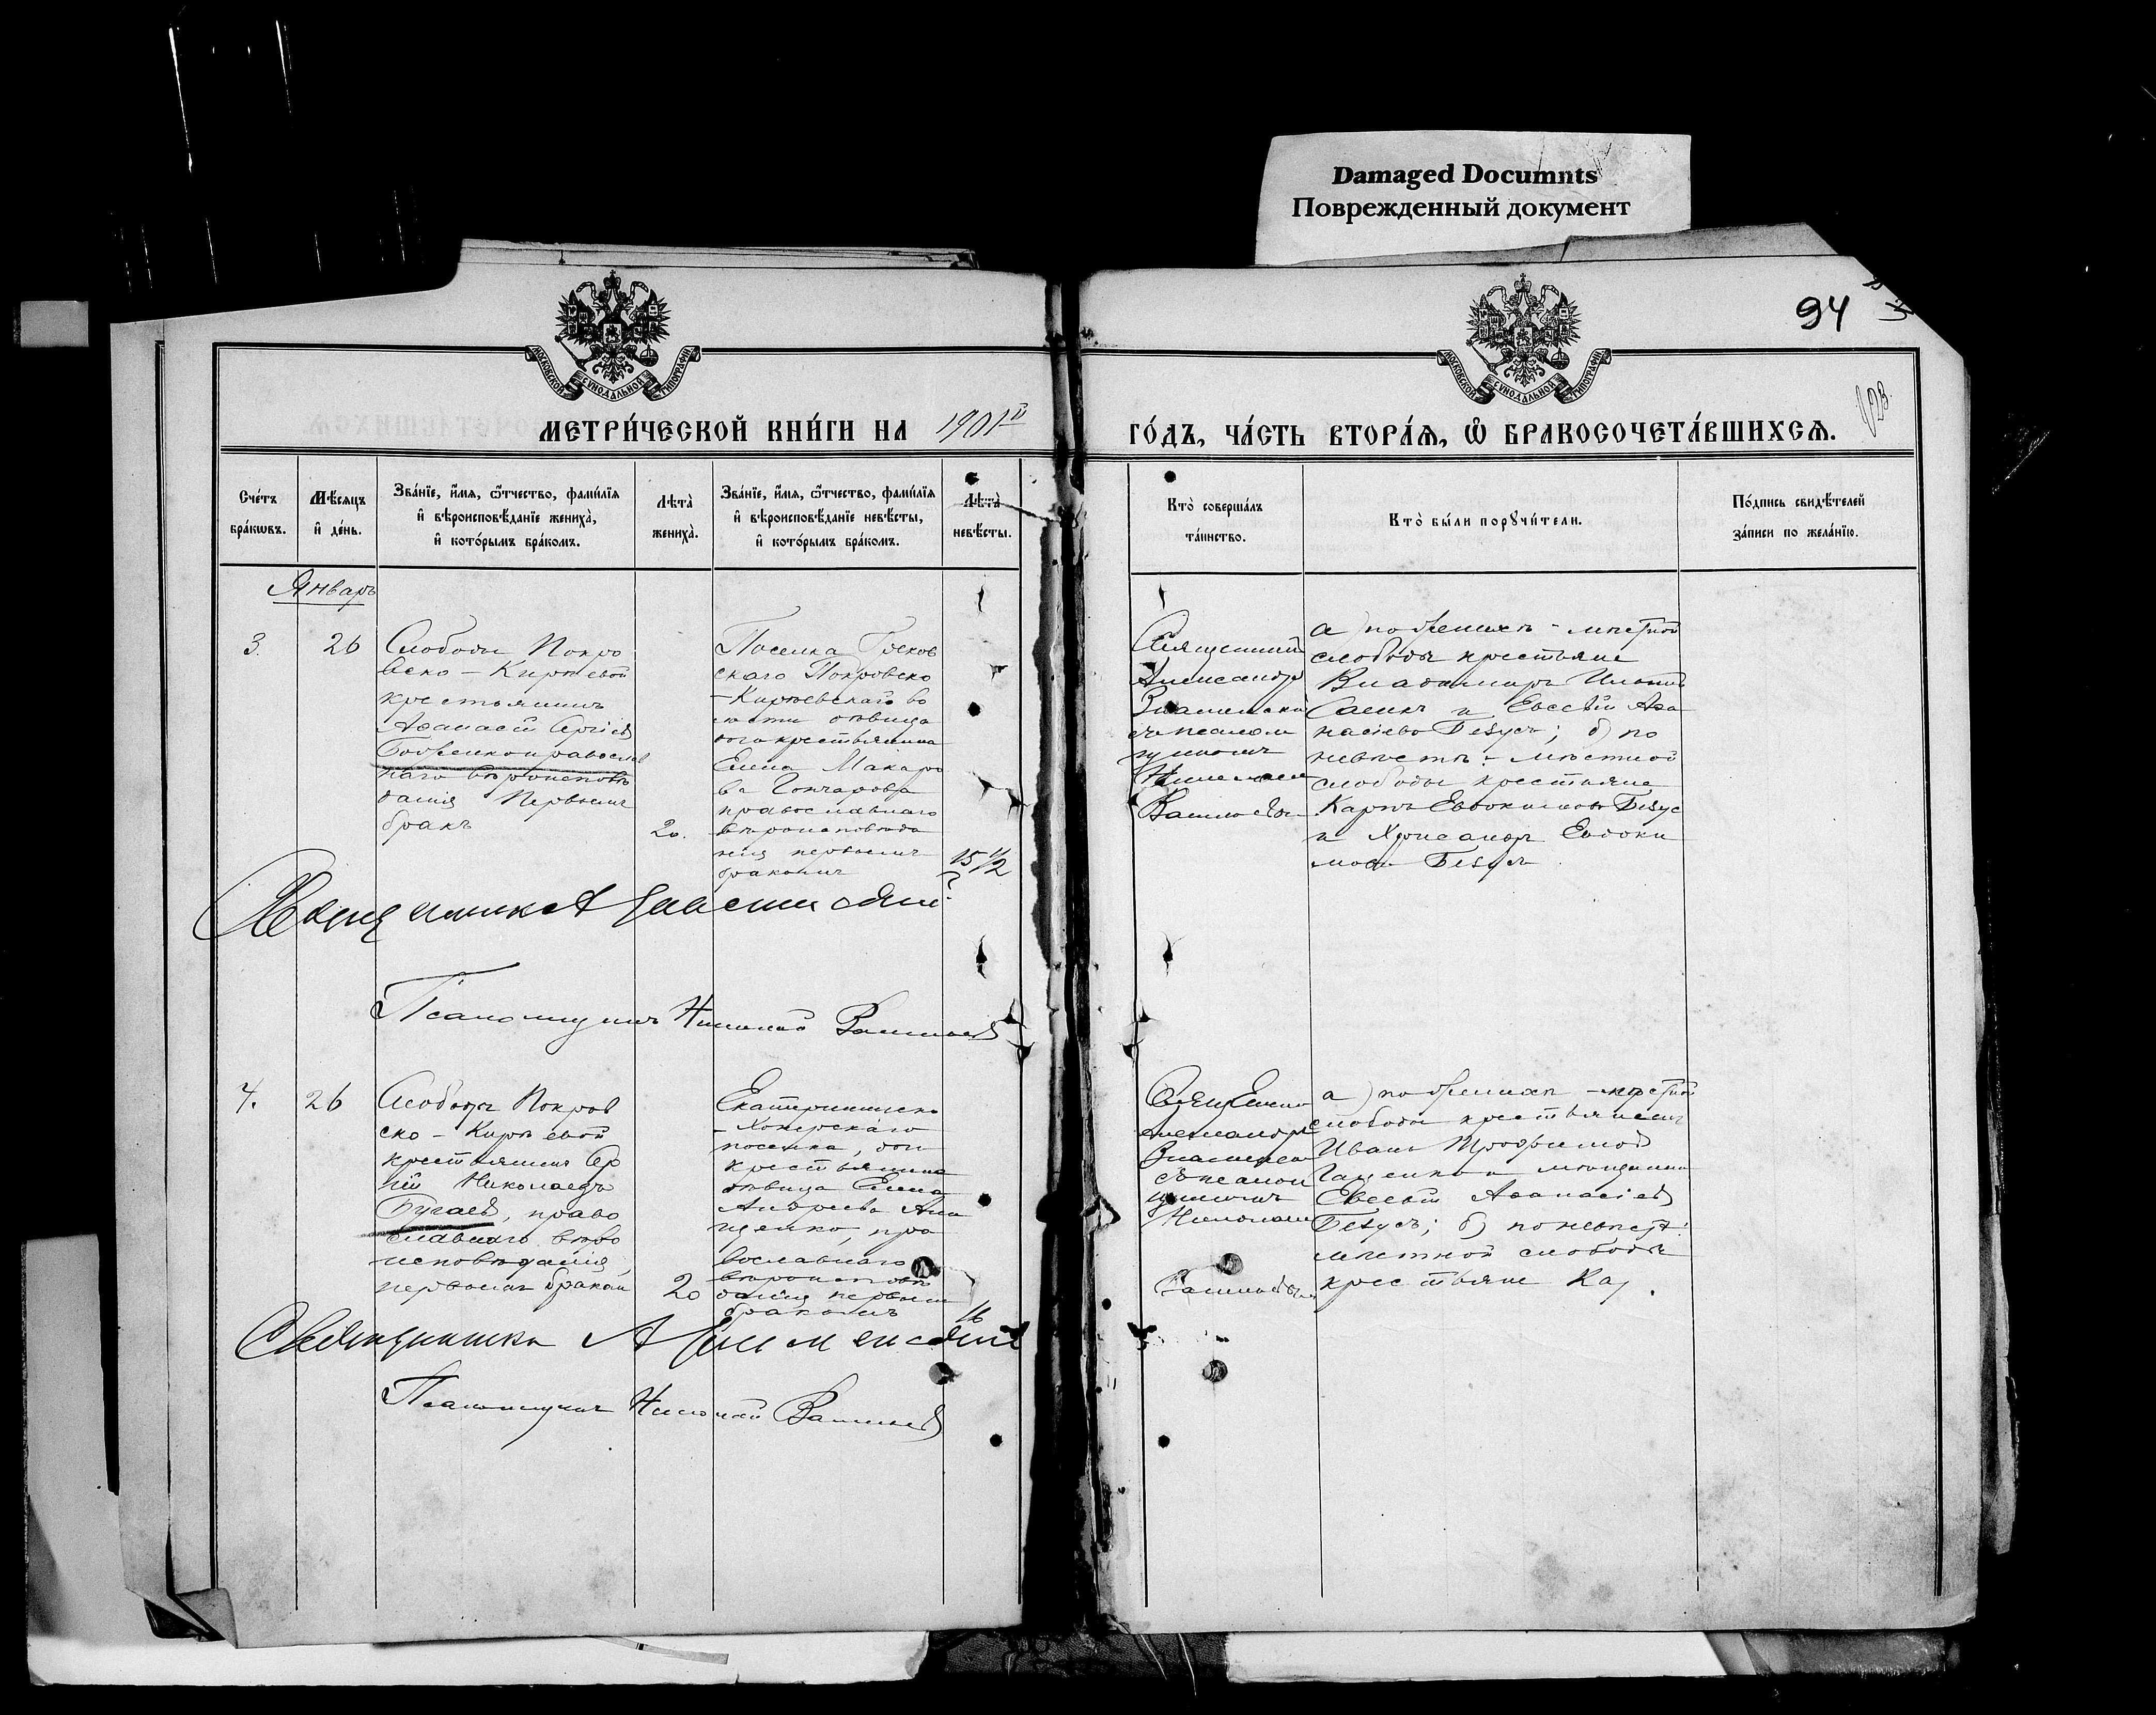 Damaged Documnts
Поврежденный документ
94
МОСКОВСКОЙ СѴНОДАЛЬНОЙ ТИПОГРАФІИ
МОСКОВСКОЙ СѴНОДАЛЬНОЙ ТИПОГРАФІИ
МЕТРИ́ЧЕСКОЙ КНИ́ГИ НА 1901й
ГО́ДЪ, ЧА́СТЬ ВТОРА́Я, Ѡ БРАКОСОЧЕТА́ВШИХСѦ.
Сче́тъ бра́кѡвъ.
Мѣ́сяцъ и҆ де́нь.
Зва́нїе, и҆́мя, ѻ҆́тчество, фами́лїя и҆ вѣроисповѣ́данїе жениха̀, и҆ кото́рымъ бра́комъ.
Лѣта̀ жениха̀.
Зва́нїе, и҆́мя, ѻ҆́тчество, фами́лїя и҆ вѣроисповѣ́данїе невѣ́сты, и҆ кото́рымъ бра́комъ.
Лѣта̀ невѣ́сты.
Кто̀ соверша́лъ та́инство.
Кто̀ бы́ли порꙋчи́тели.
По́дпись свидѣ́телей за́писи по жела́нїю.
Январь
3.
26
Слободы Покро
вско-Кирѣевой
крестьянинъ
Аѳанасій
православ
наго вѣроисповѣ
данія Первымъ
бракъ
20.
Поселка
скаго Покровско
-Кирѣевской во
лости дѣвица
дочь крестьянина
Елена Макаро
ва Гончарова
православнаго
вѣроисповѣда
нія первымъ
бракомъ
15 1/2
Священникъ
Александръ
Знаменскій
съ псалом
щикомъ
Николаемъ
Васильевымъ
а) по женихѣ - мѣстной
слободы крестьяне
Владимиръ
и Евсѣй Аѳа
насіевъ Безусъ; б) по
невѣстѣ - мѣстной
слободы крестьяне
Карпъ Евдокимовъ Безус
и Хрисанфъ Евдоки
мовъ Безусъ
Священникъ А Знаменскій
Псаломщикъ Николай Васильевъ
4.
26
Слободы Покров
ско-Кирѣевой
крестьянинъ Ар
ій Николаевъ
Бугаевъ, право
славнаго вѣро
исповѣданія,
первымъ бракомъ
20
Екатериновско
-Хаперскаго
поселка, дочь
крестьянина
дѣвица Елена
Андреева Ана
щенко, пра
вославнаго
вѣроисповѣ
данія первымъ
бракомъ
16
Священникъ
Александръ
Знаменскій
съ псалом
щикомъ
Николаемъ
Васильевымъ
а) по женихѣ - мѣстной
слободы крестьянинъ
Иванъ Трофимовъ
и мѣщанинъ
Евсѣй Аѳанасіевъ
Безусъ; б) по невѣстѣ:
мѣстной слободы
крестьяне Ка
Священникъ А Знаменскій
Псаломщикъ Николай Васильевъ